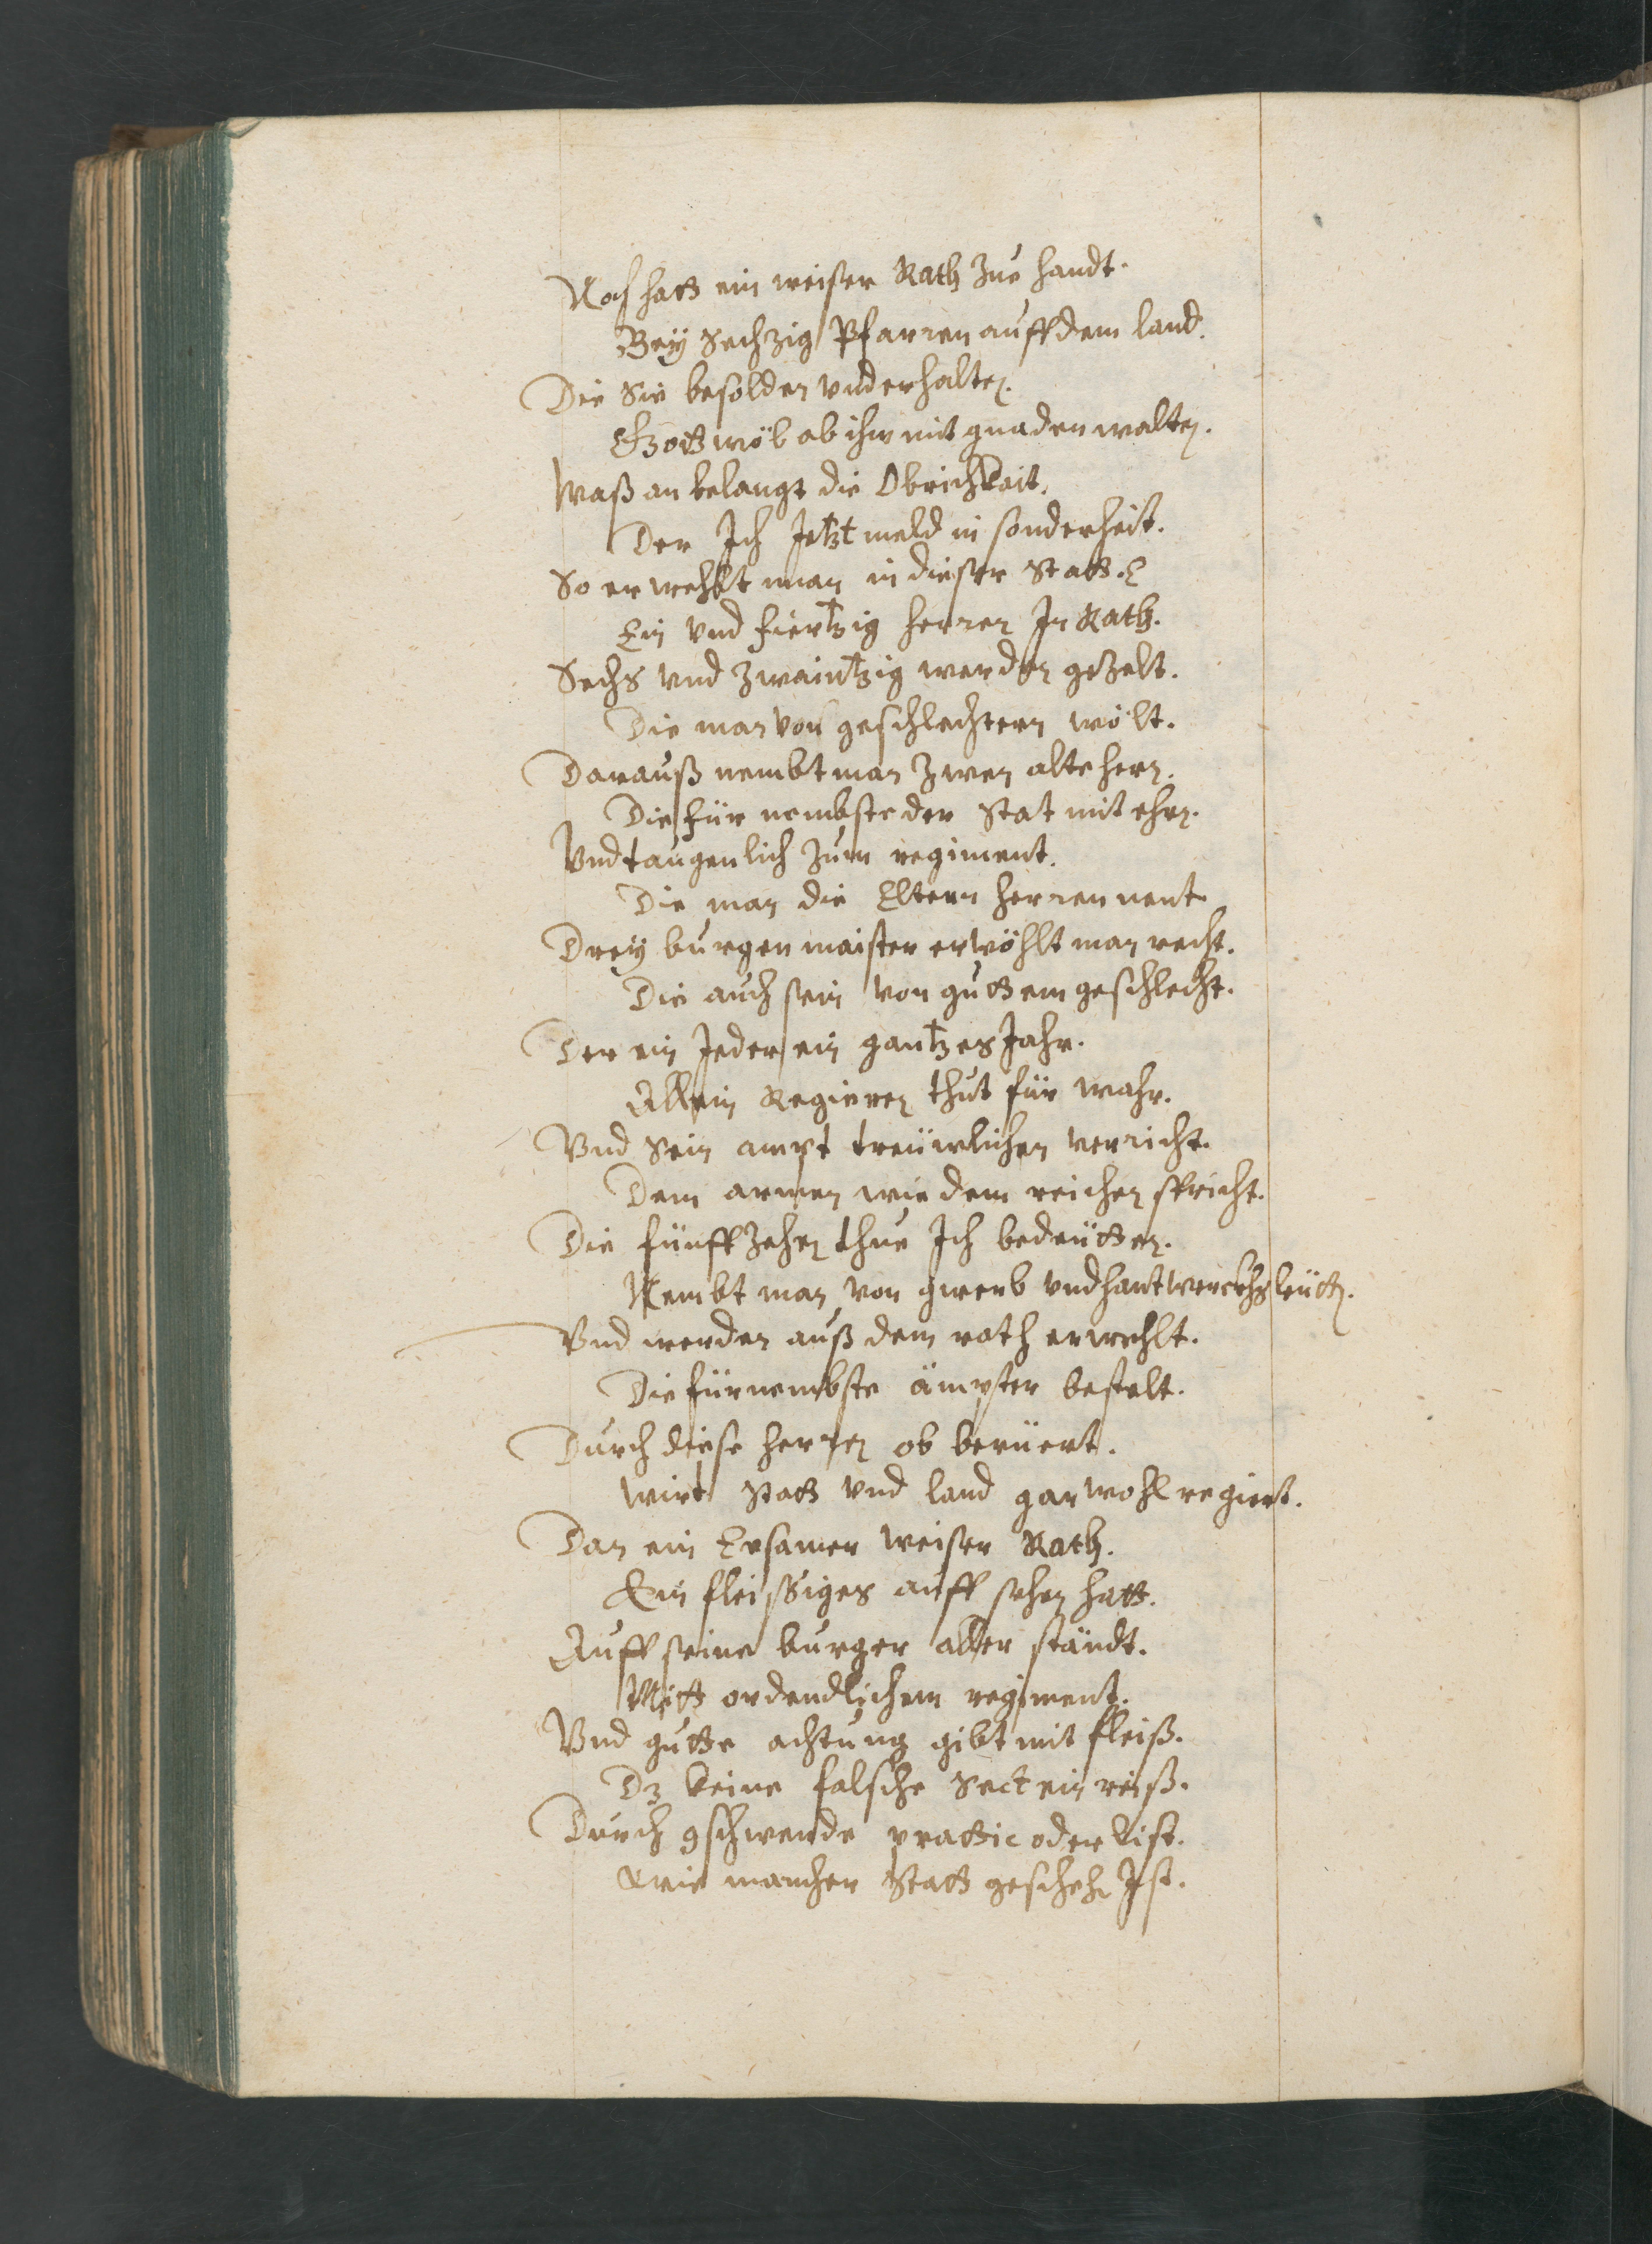 Noch hatt ein weiser Rath zue handt.
Bey Sechzig Pfarren auff dem land.
Die Sie besolden vnderhalten.
Gott wöl ob ihn mit gnaden walten.
Waß an belangt die Obrichkait.
Der Ich Jetzt meld in sonderheit.
So erwehlt man in dieser Statt.
Ein vnd fiertzig herren In Rath.
Sechs vnd zwaintzig werden gezelt.
Die man von geschlechtern wölt.
Darauß nembt man zwen alte hern.
Die für nembste der Stat mit ehrn.
Vnd taugenlich zum regiment.
Die man die Eltern herren nent
Drey burgenmaister erwöhlt man recht.
Die auch sein von guttem geschlecht.
Der ein Jeder ein gantzes Jahr.
Allein Regieren thut für wahr.
Vnd Sein ampt treuwlichen verricht.
Dem armen wie dem reichen spricht.
Die fünffzehen thue Ich bedeutten.
Nembt man von gwerb vnd hantwerckhs leutten.
Vnd werden auß dem rath erwehlt.
Die fürnembste ämpter bestelt.
Durch diese herren ob berüert.
Wirt Statt vnd land gar wohl regiert.
Dan ein Ersamer weiser Rath.
Ein fleissiges auff sehen hatt.
Auff seine burger aller ständt.
Mitt ordendlichem regiment.
Vnd gutte achtung gibt mit fleiß.
Dz keine falsche Sect ein reiß.
Durch gschwende prattic oder list.
Wie mancher Statt geschehen Ist.